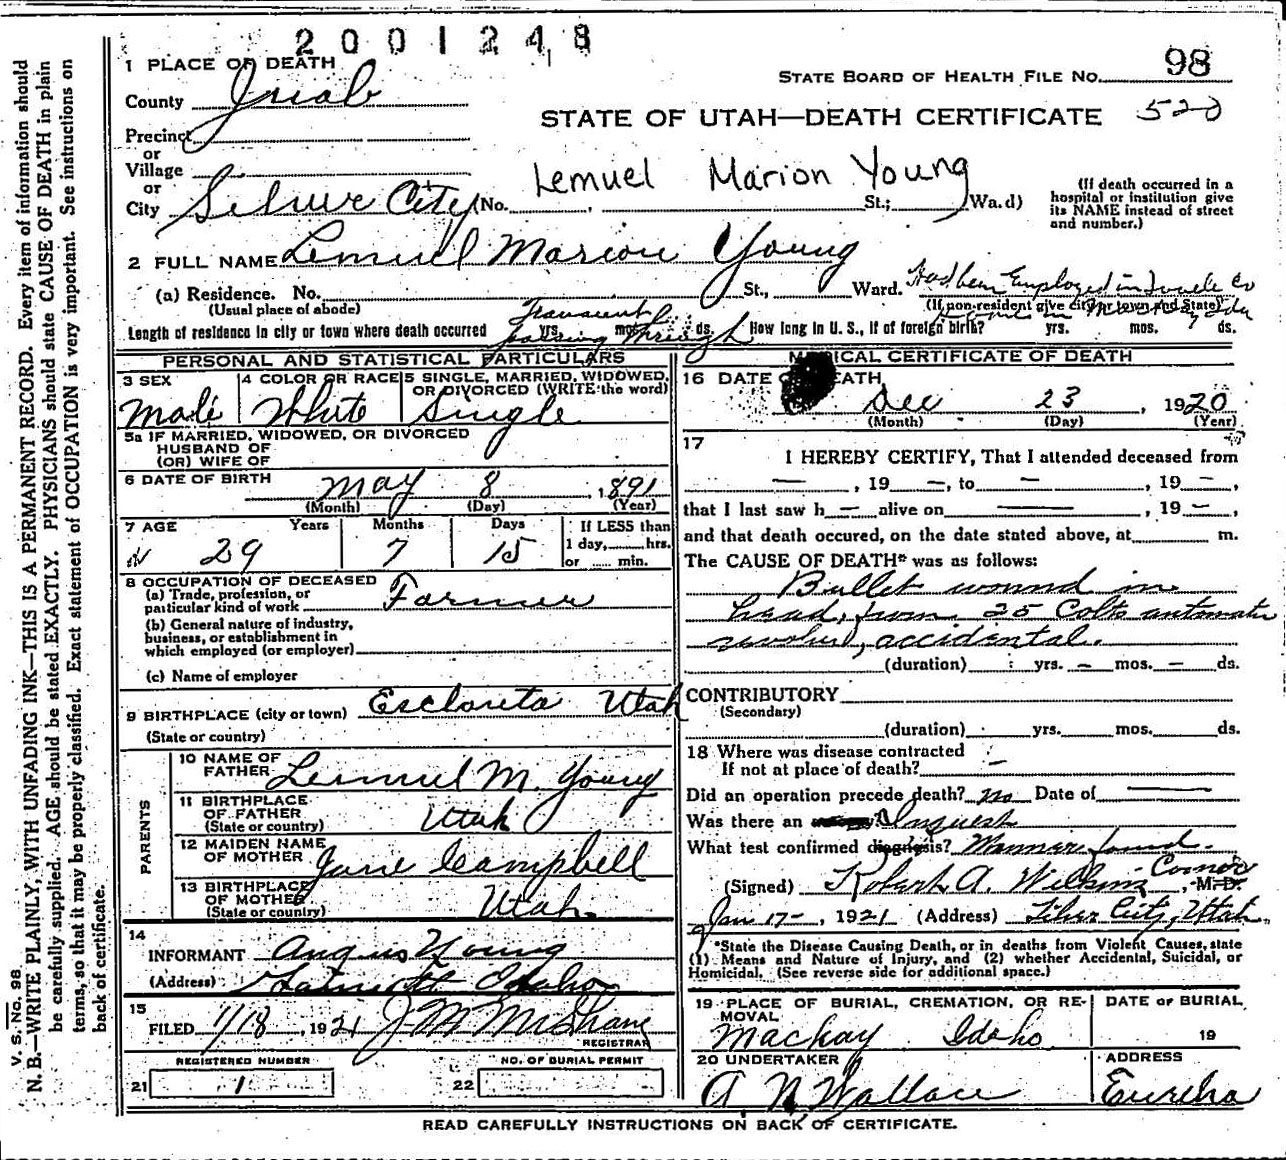 2001248
1 PLACE OF DEATH
STATE BOARD OF HEALTH FILE NO. 98
County Juab
STATE OF UTAH—DEATH CERTIFICATE 520
Precinct
or
Village
or
City Silver City (No. , St.; Ward)
Lemuel Marion Young
(If death occurred in a hospital or institution give its NAME instead of street and number.)
2 FULL NAME Lemuel Marion Young
(a) Residence. No. St., Ward. Had been Employed in Tooele Co
(Usual place of abode)
(If non-resident give city or town and State)
Transient
Length of residence in city or town where death occurred yrs. mos. ds. How long in U. S., if of foreign birth? yrs. mos. ds.
passing through
PERSONAL AND STATISTICAL PARTICULARS
3 SEX Male
4 COLOR OR RACE White
5 SINGLE, MARRIED, WIDOWED, OR DIVORCED (WRITE the word) Single
5a IF MARRIED, WIDOWED, OR DIVORCED
HUSBAND OF
(OR) WIFE OF
6 DATE OF BIRTH May 8, 1891
(Month) (Day) (Year)
7 AGE Years Months Days If LESS than
29 7 15 1 day, hrs.
or min.
8 OCCUPATION OF DECEASED
(a) Trade, profession, or
particular kind of work Farmer
(b) General nature of industry,
business, or establishment in
which employed (or employer)
(c) Name of employer
9 BIRTHPLACE (city or town) Escloreta Utah
(State or country)
PARENTS
10 NAME OF FATHER Lemuel M. Young
11 BIRTHPLACE OF FATHER Utah
(State or country)
12 MAIDEN NAME OF MOTHER Jane Campbell
13 BIRTHPLACE OF MOTHER Utah.
(State or country)
14 INFORMANT Angus Young
(Address) Idaho
15 FILED 1/18, 1921 J M McShane
REGISTRAR
REGISTERED NUMBER
21 1
NO. OF BURIAL PERMIT
22
MEDICAL CERTIFICATE OF DEATH
16 DATE OF DEATH
Dec 23, 1920
(Month) (Day) (Year)
17
I HEREBY CERTIFY, That I attended deceased from
—, 19 —, to —, 19 —,
that I last saw h — alive on —, 19 —,
and that death occured, on the date stated above, at m.
The CAUSE OF DEATH* was as follows:
Bullet wound in
head, from 25 Colts automatic
revolver, accidental.
(duration) yrs. — mos. — ds.
CONTRIBUTORY
(Secondary)
(duration) yrs. mos. ds.
18 Where was disease contracted
If not at place of death? —
Did an operation precede death? No Date of —
Was there an Inquest
What test confirmed diagnosis? Manner found.
(Signed) Robert A. Wilkins Coroner, M. D.
Jan 17-, 1921 (Address) Silver City, Utah.
*State the Disease Causing Death, or in deaths from Violent Causes, state
(1) Means and Nature of Injury, and (2) whether Accidental, Suicidal, or
Homicidal. (See reverse side for additional space.)
19 PLACE OF BURIAL, CREMATION, OR REMOVAL
Mackay Idaho
DATE OF BURIAL
19
20 UNDERTAKER
A N Wallace
ADDRESS
Eureka
READ CAREFULLY INSTRUCTIONS ON BACK OF CERTIFICATE.
V. S. No. 98
N. B.—WRITE PLAINLY, WITH UNFADING INK—THIS IS A PERMANENT RECORD. Every item of information should
be carefully supplied. AGE should be stated EXACTLY. PHYSICIANS should state CAUSE OF DEATH in plain
terms, so that it may be properly classified. Exact statement of OCCUPATION is very important. See instructions on
back of certificate.